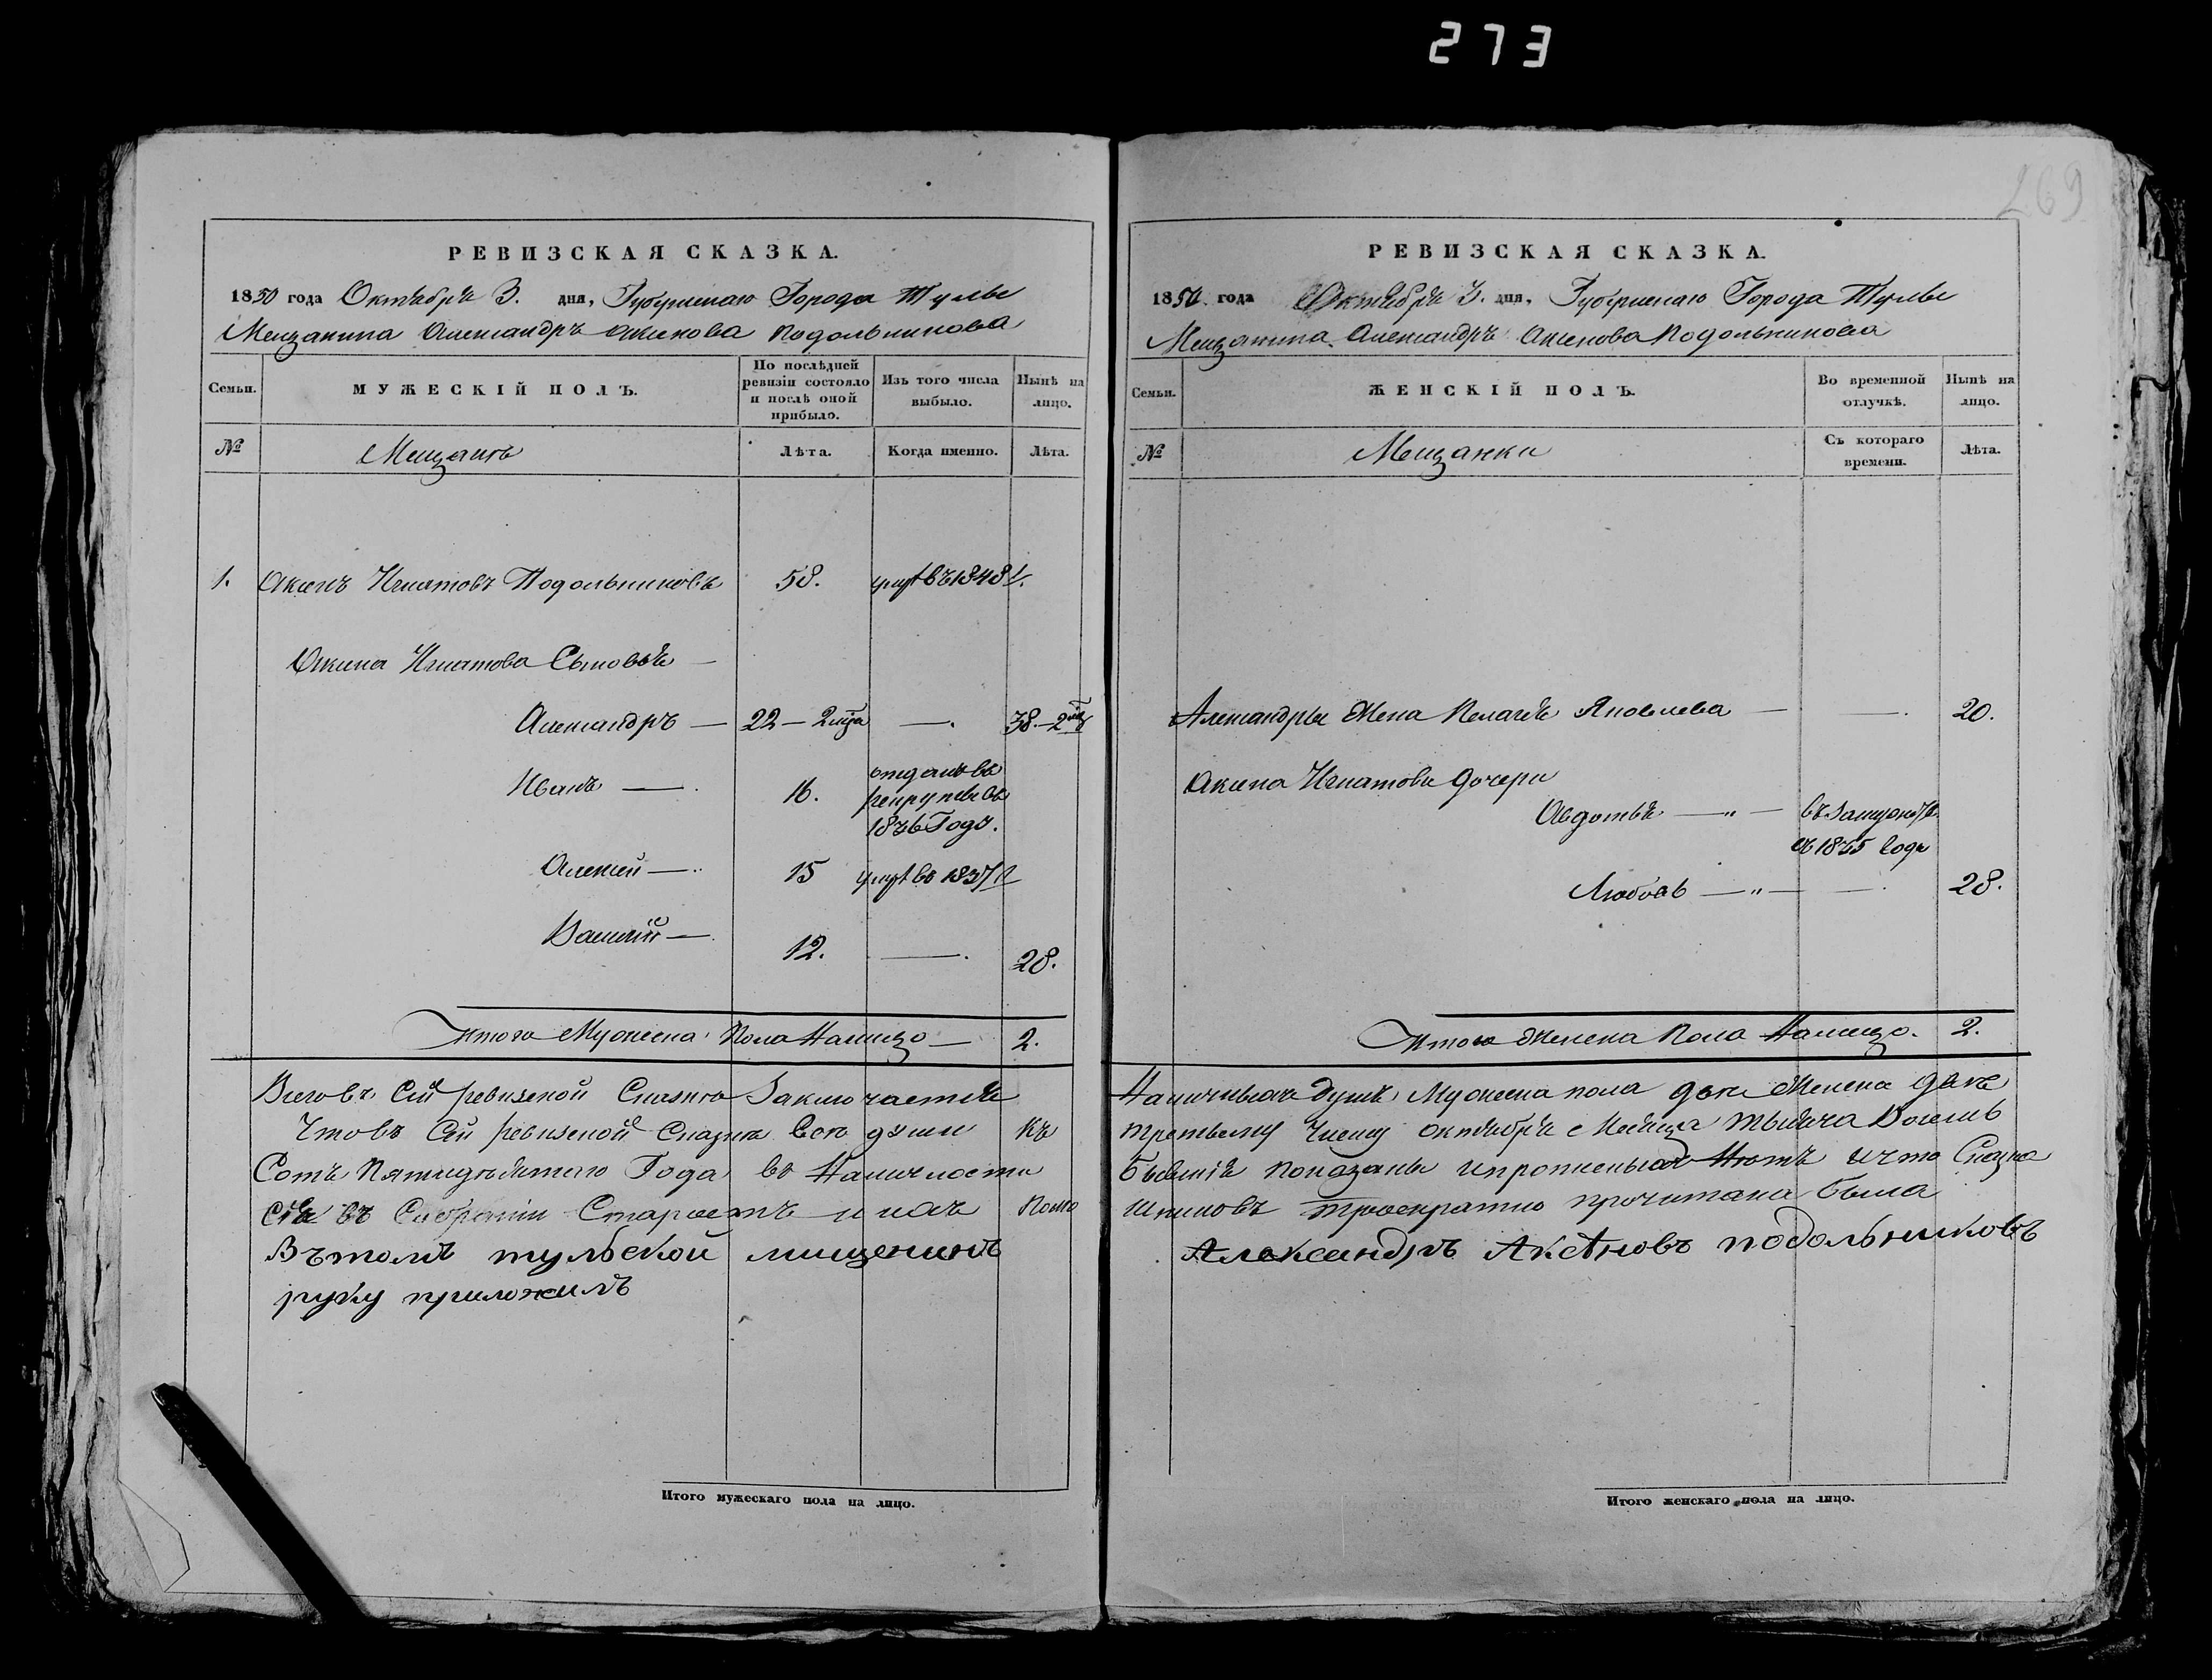 273
269
РЕВИЗСКАЯ СКАЗКА.
1850 года Октября 3. дня, Губернскаго Города Тулы
Мещанина Александръ Акимова Подольникова
Семьи.
МУЖЕСКІЙ ПОЛЪ.
По послѣдней ревизіи состояло и послѣ оной прибыло.
Изъ того числа выбыло.
Нынѣ на лицо.
№
Мещанъ
Лѣта.
Когда именно.
Лѣта.
1. Акимъ Игнатовъ Подольниковъ 58. умръ въ 1848 г.
Акима Игнатова Сыновья —
Александръ — 22 — 2 мца — . 38. — 2 мц
Иванъ — . 16. отданъ въ
рекруты въ
1836 Годъ.
Алексей — .. 15 умръ въ 1837 г
Василій — . 12. — . 28.
Итого Мужеска Пола Налицо — 2.
Всего въ Сей ревизской Сказке Заключается
Что въ Сей ревизской Сказке все души Къ
Сотъ Пятидесятаго Года въ Наличности
Сія въ Собраніи Старостъ и ихъ Помо
Въ томъ тульской мищенинъ
руку приложилъ
Итого мужескаго пола на лицо.
РЕВИЗСКАЯ СКАЗКА.
1850. года Октября 3. дня, Губернскаго Города Тулы
Мещанина Александръ Акимова Подольникова
Семьи.
ЖЕНСКІЙ ПОЛЪ.
Во временной отлучкѣ.
Нынѣ на лицо.
№
Мещанки
Съ котораго времени.
Лѣта.
Александры Жена Пелагея Яковлева — — . 20.
Акима Игнатова дочери
Авдотья — " — въ Замужствѣ
съ 1835 Года
Любовь — " — — . 28.
Итого Женска Пола Налицо. 2.
Наличныхъ душъ Мужеска пола две Женска две
третьему Числу октября Месяца тысяча Восемь
бывшія показаны и прописныхъ Нѣтъ и что Сказка
троекратно прочитана была
Александръ Аксѣновъ подольниковъ
Итого женскаго пола на лицо.